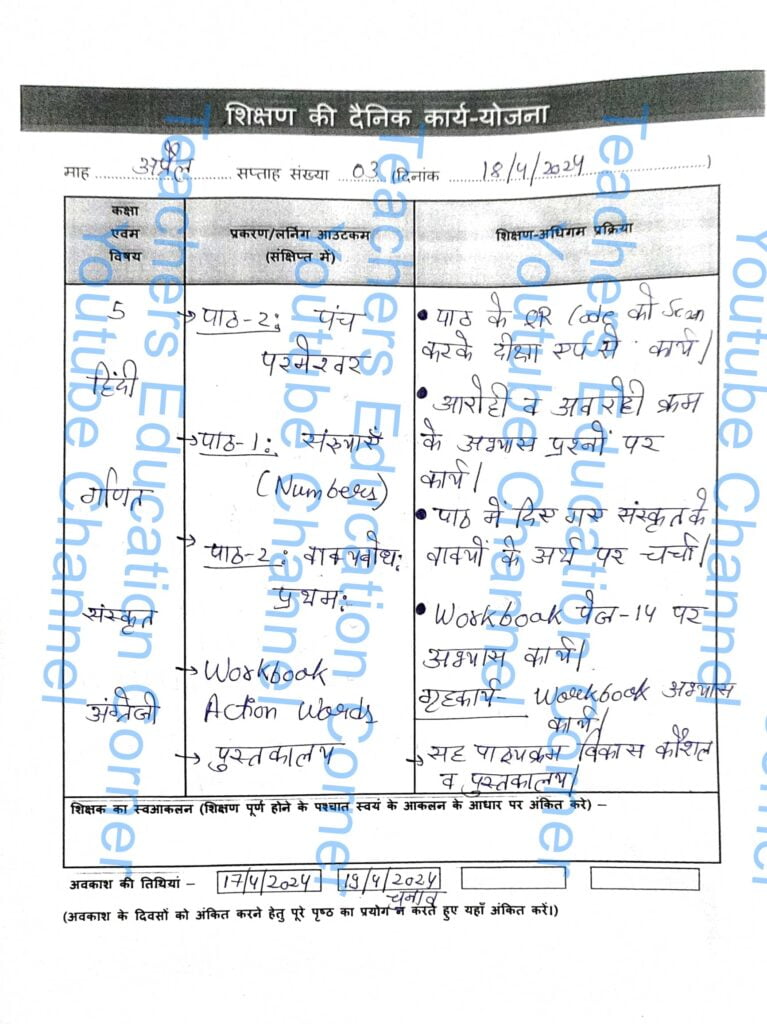 शिक्षण की दैनिक कार्य-योजना
माह अप्रैल सप्ताह संख्या 03 (दिनांक 18/4/2024)
कक्षा
एवम
विषय
प्रकरण/लर्निंग आउटकम
(संक्षिप्त में)
शिक्षण-अधिगम प्रक्रिया
5
हिंदी
गणित
संस्कृत
अंग्रेजी
→ पाठ-2: पंच
परमेश्वर
→ पाठ-1: संख्याएँ
(Numbers)
→ पाठ-2: वाक्यबोध:
प्रथम:
→ Workbook
Action Words
→ पुस्तकालय
• पाठ के QR Code को Scan
करके दीक्षा एप से कार्य।
• आरोही व अवरोही क्रम
के अभ्यास प्रश्नों पर
कार्य।
• पाठ में दिए गए संस्कृत के
वाक्यों के अर्थ पर चर्चा।
• Workbook पेज-14 पर
अभ्यास कार्य।
गृहकार्य- Workbook अभ्यास
कार्य।
→ सह पाठ्यक्रम विकास कौशल
व पुस्तकालय।
शिक्षक का स्वआकलन (शिक्षण पूर्ण होने के पश्चात स्वयं के आकलन के आधार पर अंकित करे) –
अवकाश की तिथियां – 17/4/2024 19/4/2024
चुनाव
(अवकाश के दिवसों को अंकित करने हेतु पूरे पृष्ठ का प्रयोग न करते हुए यहाँ अंकित करें।)
Teachers Education Corner
Youtube Channel
Teachers Education Corner
Youtube Channel
Teachers Education Corner
Youtube Channel
Youtube Channel